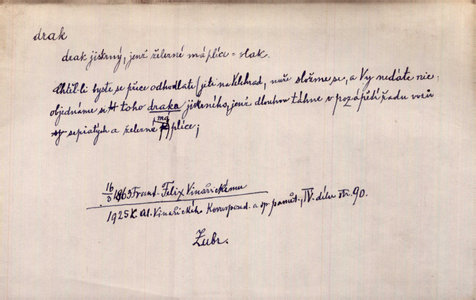 drak
drak jiskrný, jenž železné má plíce = vlak.
Chtěli byste se přece odhodlati jeti na Velehrad, nuže složme se, a Vy nedáte nic,
objednáme si toho draka jiskrného, jenž dlouhou táhne v pozápětí řadu vozův
sepiatých a železné má plíce;
16/3 1863 Frant. Felix Vinařickému
1925 K. Al. Vinařického Korespond. a sp. pamět., IV. dílu str. 90.
Zubr.